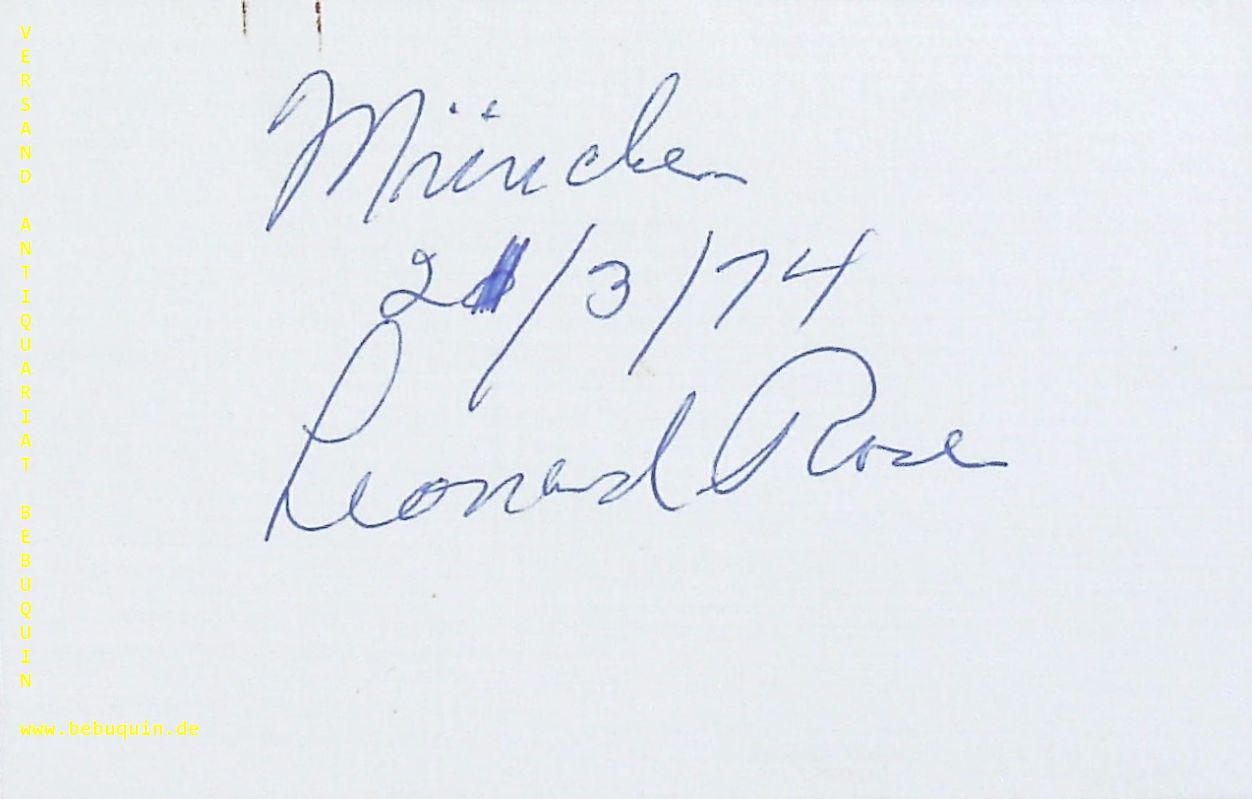 VERSAND ANTIQUARIAT BEBUQUIN
München
21/3/74
Leonard Rose
www.bebuquin.de